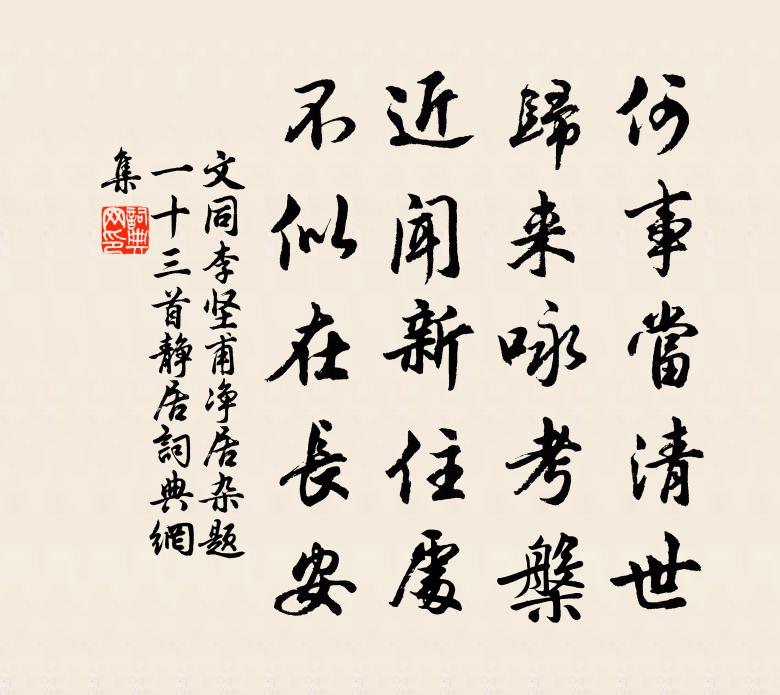 何事當清世
歸来咏考槃
近聞新住處
不似在長安
文同李坚甫净居杂题
一十三首静居詞典網
集
詞典
网印